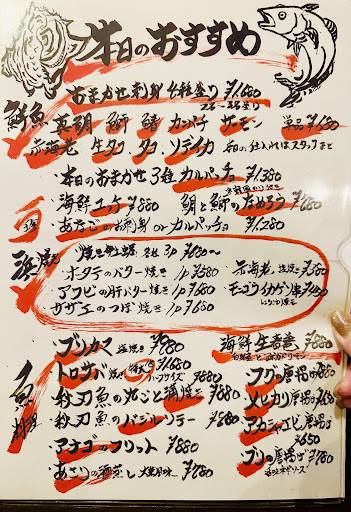 本日のおすすめ
鮮魚
おまかせ刺身 6種盛り ¥1,680
真鯛 鰤 鯖 カンパチ サーモン 単品 ¥680
赤海老 生タコ タコ ソデイカ 他の仕入れはスタッフまで
本日のおまかせ3種 カルパッチョ ¥1,380
海鮮ユッケ ¥880 鯛と鰤のなめろう ¥880
あなごのお刺身 or カルパッチョ ¥1,280
浜焼き
焼き牡蠣 各種 3p ¥680〜
ホタテのバター焼き 1p ¥580
赤海老 塩焼き ¥580
アワビの肝バター焼き 1p ¥680
モンゴウイカゲソ串 ¥450
サザエのつぼ焼き 1p ¥680
魚料理
ブリカマ 塩焼き ¥980
海鮮生春巻 ¥880
トロサバ ¥1,680
ハーフサイズ ¥880
フグの唐揚げ ¥880
秋刀魚の丸ごと蒲焼き ¥880
メヒカリ唐揚げ ¥780
秋刀魚のバジルソテー ¥880
アカシャエビ唐揚げ ¥650
アナゴのフリット ¥880
ブリの唐揚げ ¥780
あさりの酒蒸し 大葉風味 ¥780